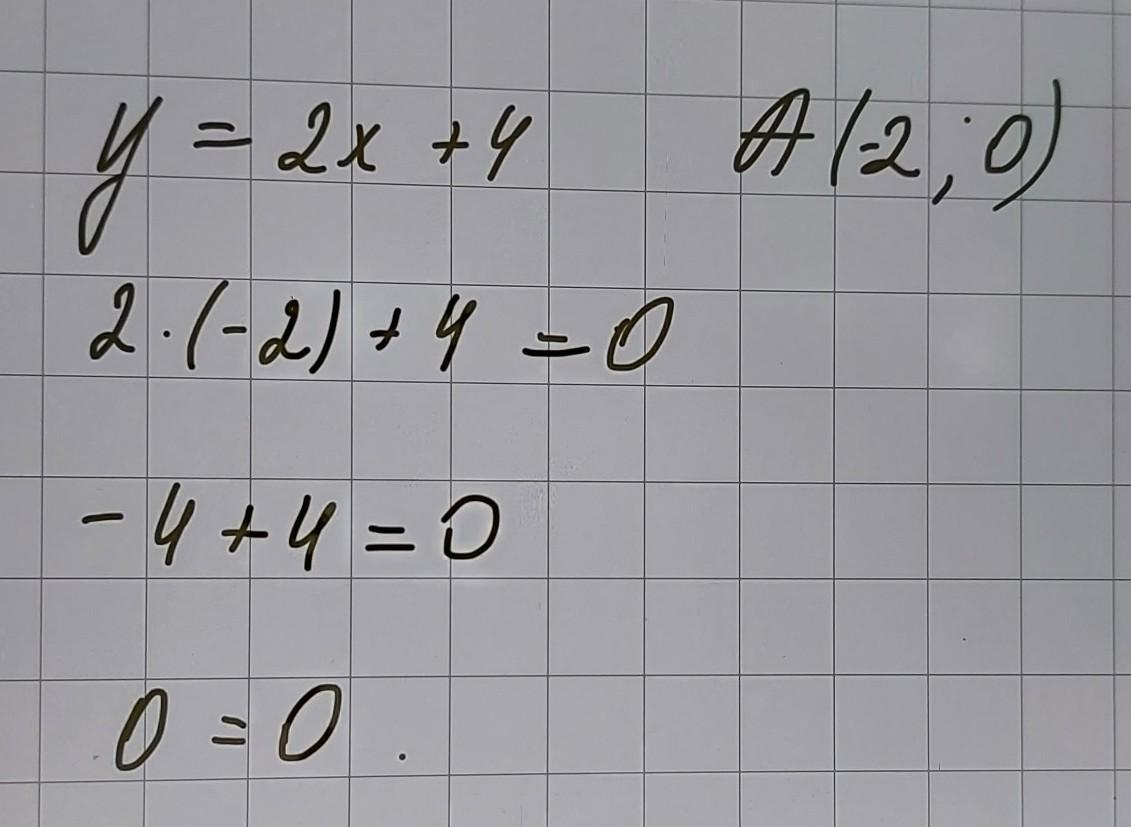 y = 2x + 4 A (-2 ; 0)
2 · (-2) + 4 = 0
- 4 + 4 = 0
0 = 0 .